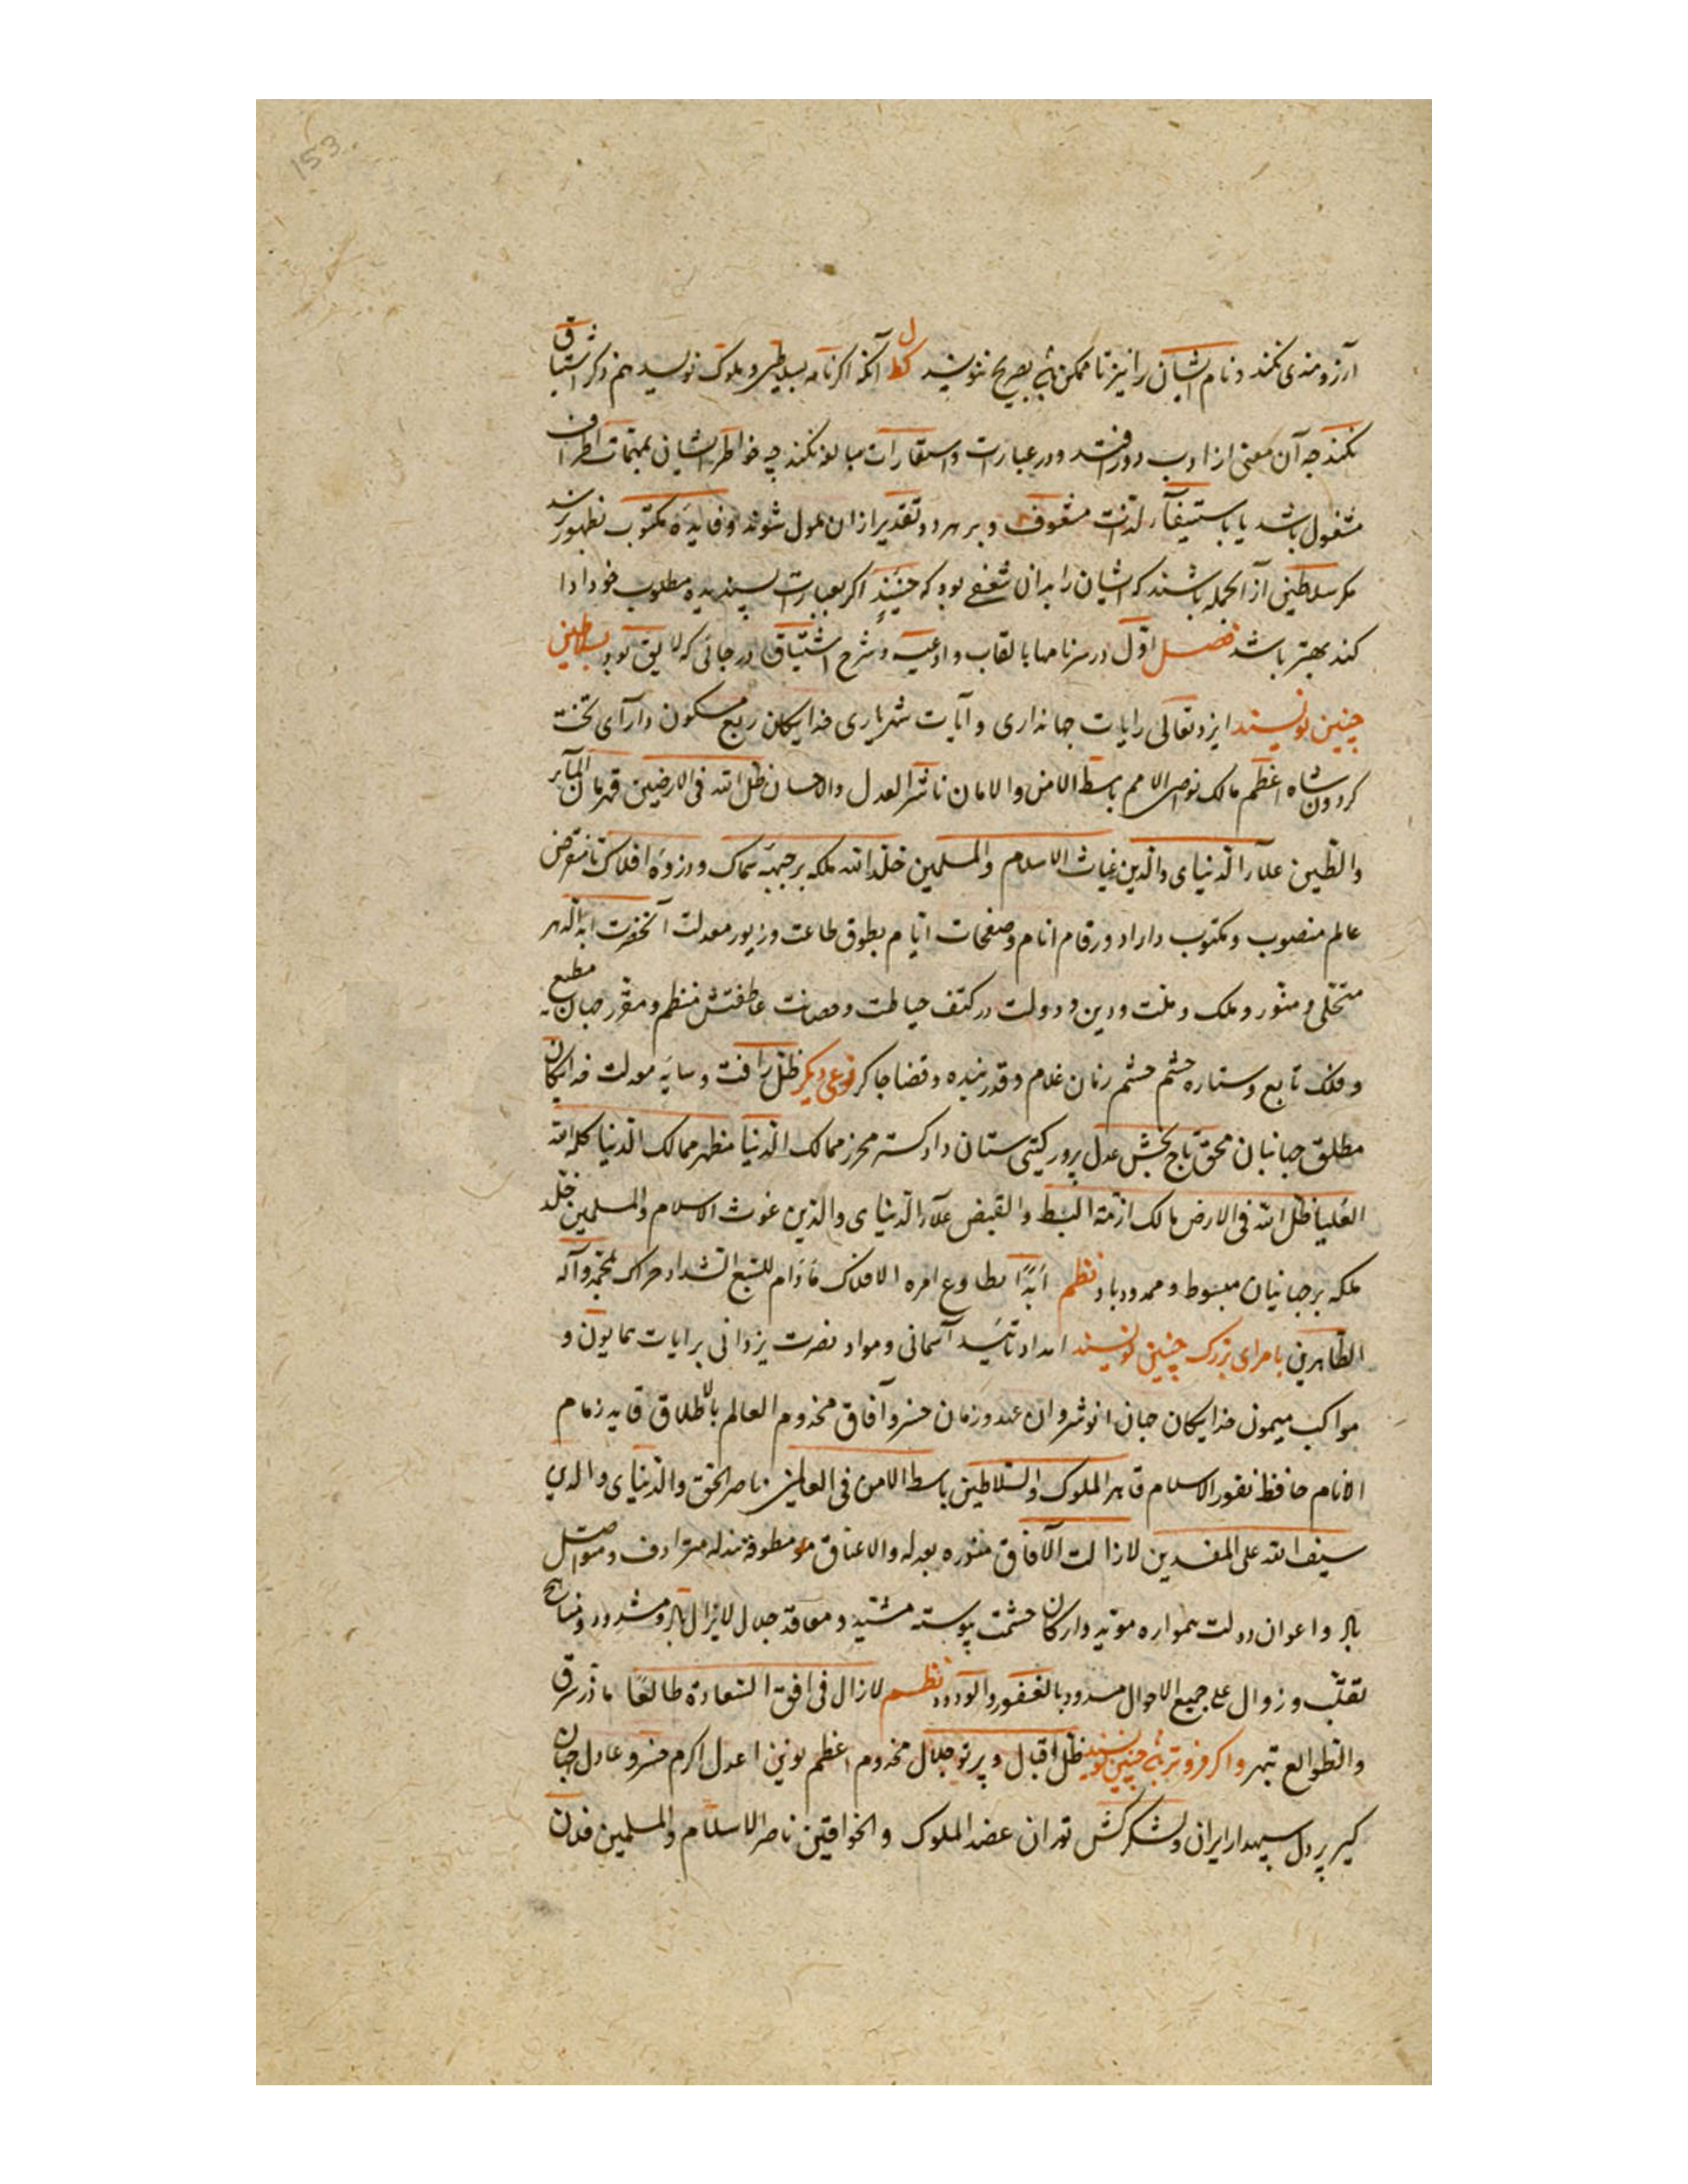 153
آرزومندی نکند و نام ایشان را نیز تا ممکن باشد بصریح ننویسد آنکه اگر نامه بسلاطین و ملوک نویسد هم ذکر اشتیاق
نکند چه آن معنی از ادب دور افتد و در عبارت و استعارات مبالغه نکند چه خواطر ایشان بمهمات اطراف
مشغول باشد یا باستیفآء لذات مشعوف و بر هر دو تقدیر ازان ملول شوند و فایدهٔ مکتوب بظهور نرسد
مکر سلاطینی از آنجمله باشند که ایشان را بدان شعفی بود که حینئذٍ اکر بعبارت پسندیده مطلوب خود ادا
کند بهتر باشد فصل اوّل در سرنامها بالقاب و ادعیه و شرح اشتیاق در جائی که لایق بود بسلاطین
چنین نویسند ایزد تعالی رایات جهانداری و آیات شهریاری خدایکان ربع مسکون دارآی تخت
کردون شاه اعظم مالک نواصی الامم باسط الامن و الامان ناشر العدل والاحسان ظل الله فی الارضین قهرمان المآء
والطین علاء الدنیا والدین غیاث الاسلام والمسلمین خلد الله ملکه بر جبههٔ سماک و ذروهٔ افلاک تا منقرض
عالم منصوب و مکتوب داراد و رقام انام و صفحات ایام بطوق طاعت و زیور معدلت آنحضرت ابد الدهر
متحلی و منور و ملک و ملت و دین و دولت در کنف حیاطت و حصانت عاطفتش منظم و مقرر جهان مطیع
و فلک تابع و ستاره حشم حشم زمان غلام و قدر بنده و قضا جاکر نوعی دیکر ظل رافت و سایه معدلت خدایکان
مطلق جهانبان محق تاج بخش عدل پرور کیتی ستان دادکستر محرز ممالک الدنیا مظهر ممالک الدنیا کلمة الله
العلیا ظل الله فی الارض مالک ازمة البسط والقبض علاء الدنیا والدین غوث الاسلام والمسلمین خلد
ملکه بر جهانیان مبسوط و ممدود باد نظم ابدًا یطاوع امره الافلاک مادام للسبع الشداد حراک بمحمد وآله
الطاهرین بامرای بزرک چنین نویسند امداد تایید آسمانی و مواد نصرت یزدانی بر رایات همایون و
مواکب میمون خدایکان جهان انوشروان عهد و زمان خسرو آفاق مخدوم العالم بالاطلاق قاید زمام
الانام حافظ ثغور الاسلام قاهر الملوک والسلاطین باسط الامن فی العالمین ناصر الحق والدنیا والدین
سیف الله علی المفسدین لازالت الآفاق منوره بعدله والاعناق مطوقة ببذله مترادف و متواصل
باد و اعوان دولت همواره موید و ارکان حشمت پیوسته مشید و معاقد جلال لایزال و مناهج
تقلب و زوال علی جمیع الاحوال مسدود بالغفور الودود نظم لازال فی افق السعادة طالعًا ما ذر شرق
والطوالع تبهر و اکر فروتر باشد چنین نویسند ظل اقبال و پرتو جلال مخدوم اعظم نوئین اعدل اکرم خسرو عادل جهان
کیر پردل سپهدار ایران و لشکرکش توران عضد الملوک والخواقین ناصر الاسلام والمسلمین فلان